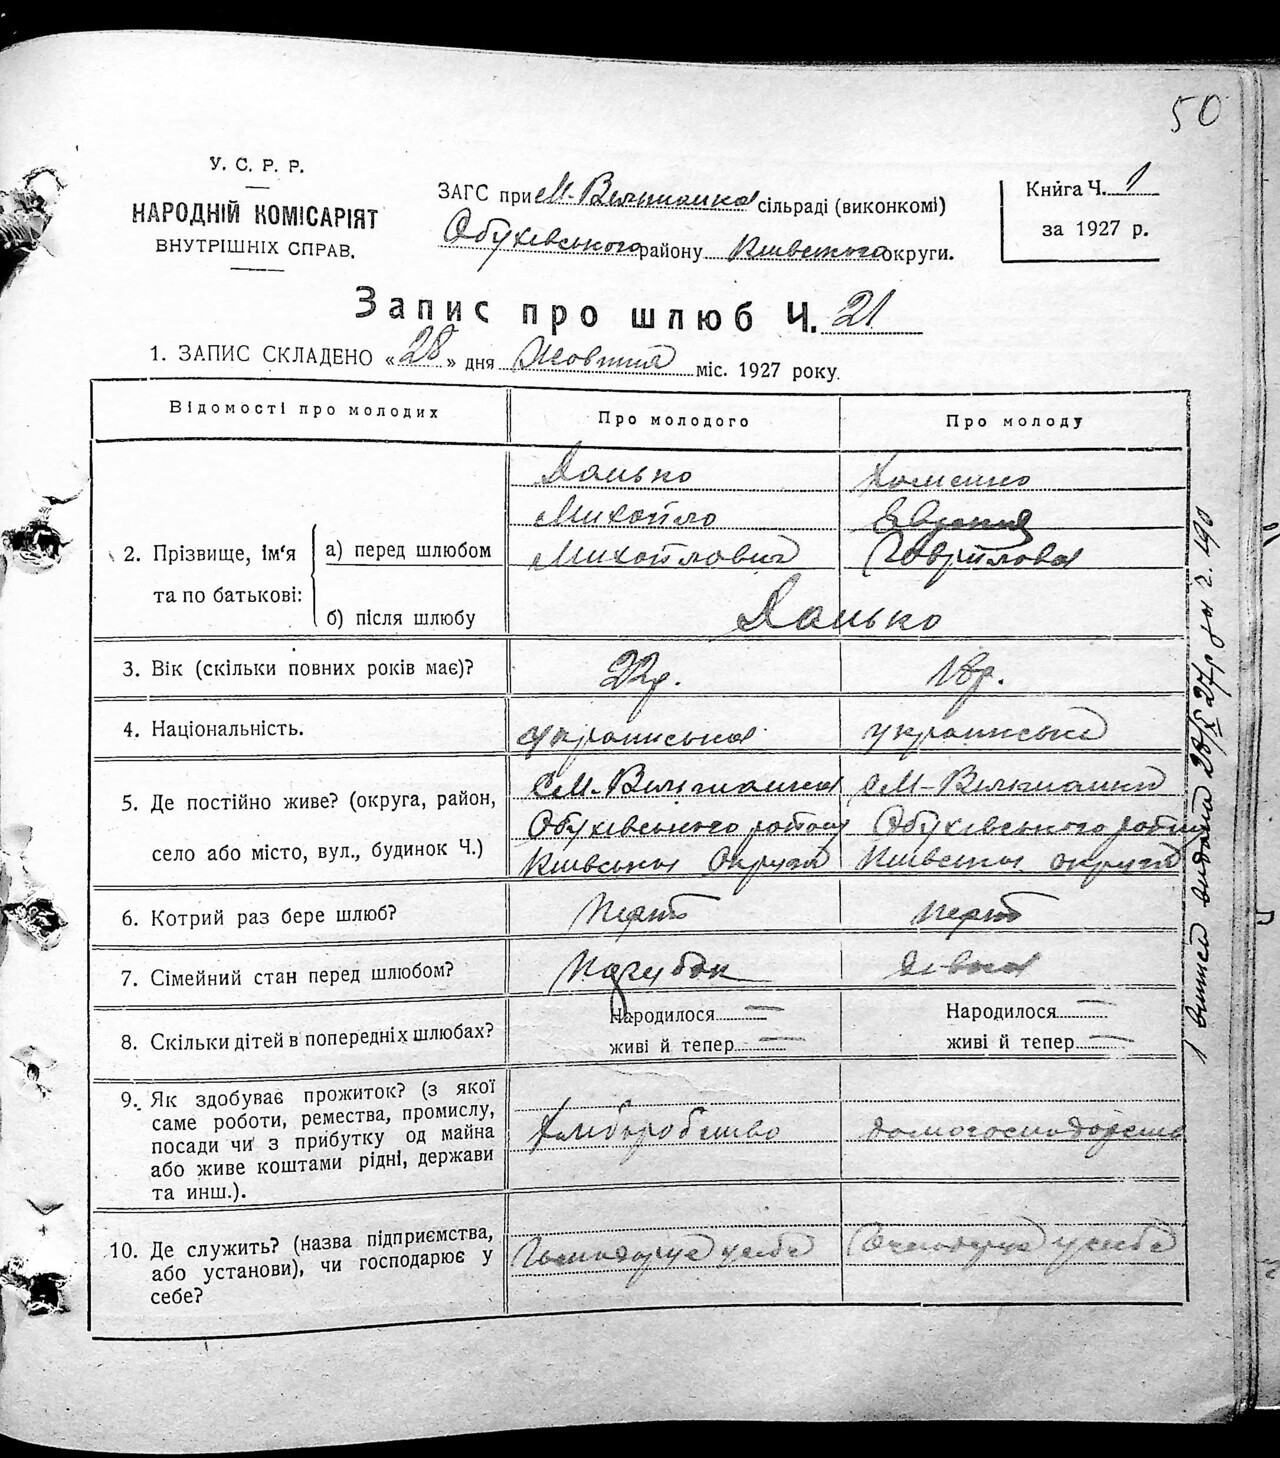 50
У. С. Р. Р.
НАРОДНІЙ КОМІСАРІЯТ
ВНУТРІШНІХ СПРАВ.
ЗАГС при М-Вільшанка сільраді (виконкомі)
Обухівського району Київського округи.
Книга Ч. 1
за 1927 р.
Запис про шлюб Ч. 21
1. ЗАПИС СКЛАДЕНО «28» дня Жовтня міс. 1927 року.
Відомості про молодих
Про молодого
Про молоду
2. Прізвище, ім'я та по батькові:
а) перед шлюбом
Данько
Михайло
Михайлович
Хоменко
Евгенія
Гаврилова
б) після шлюбу
Данько
3. Вік (скільки повних років має)?
22р.
18р.
4. Національність.
українська
українська
5. Де постійно живе? (округа, район,
село або місто, вул., будинок Ч.)
см-Вільшанка
Обухівського району
Київської Округи
см-Вільшанка
Обухівського району
Київської округи
6. Котрий раз бере шлюб?
перший
перший
7. Сімейний стан перед шлюбом?
парубок
дівка
8. Скільки дітей в попередніх шлюбах?
Народилося —
живі й тепер —
Народилося —
живі й тепер —
9. Як здобуває прожиток? (з якої
саме роботи, ремества, промислу,
посади чи з прибутку од майна
або живе коштами рідні, держави
та инш.).
Хліборобство
домогосподарство
10. Де служить? (назва підприємства,
або установи), чи господарює у
себе?
Господарює у себе
у себе
1 виписка видана 28/X 27р. за Ч. 190